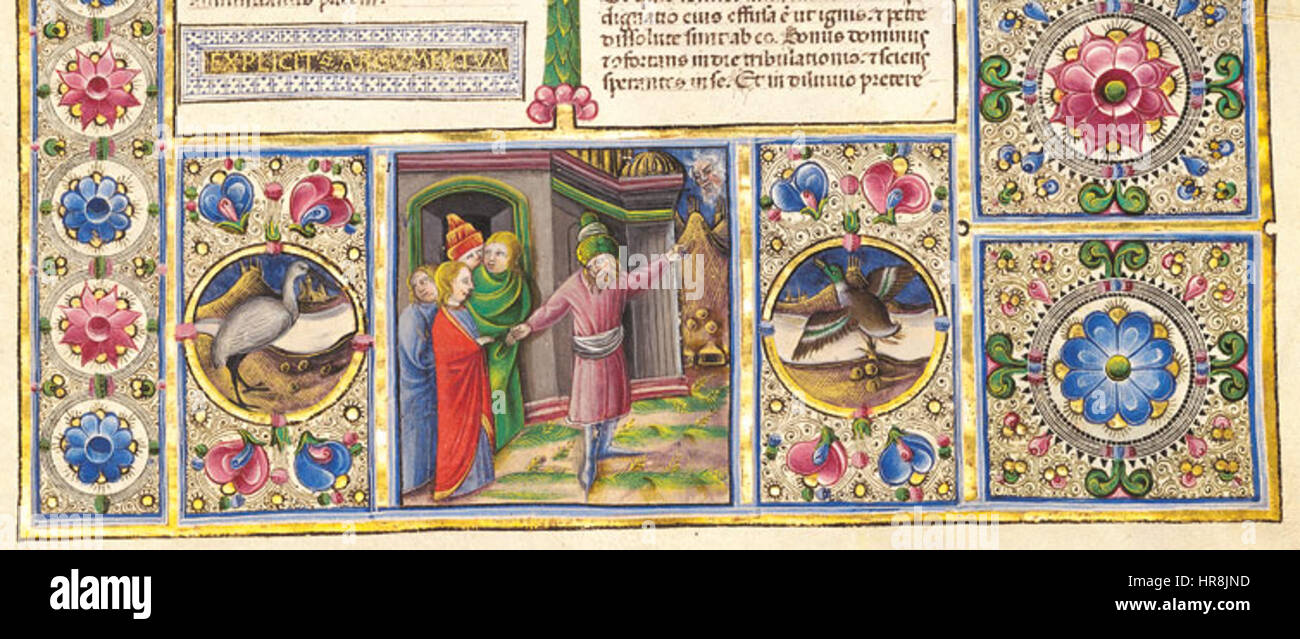 EXPLICIT ARGUMENTUM
dignatio eius effusa ē ut ignis. ⁊ petre
dissolute sunt ab eo. Bonus dominus
⁊ cōfortans in die tribulationis. ⁊ sciens
sperantes in se. Et in diluuio pretere
a
alamy
a
a
alamy stock photo
HR8JND
www.alamy.com